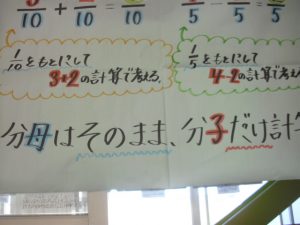 3/10 + 2/10 = 5/10
4/5 - 2/5 = 2/5
1/10をもとにして
3+2の計算で考える。
1/5をもとにして
4-2の計算で考え
分母はそのまま、分子だけ計